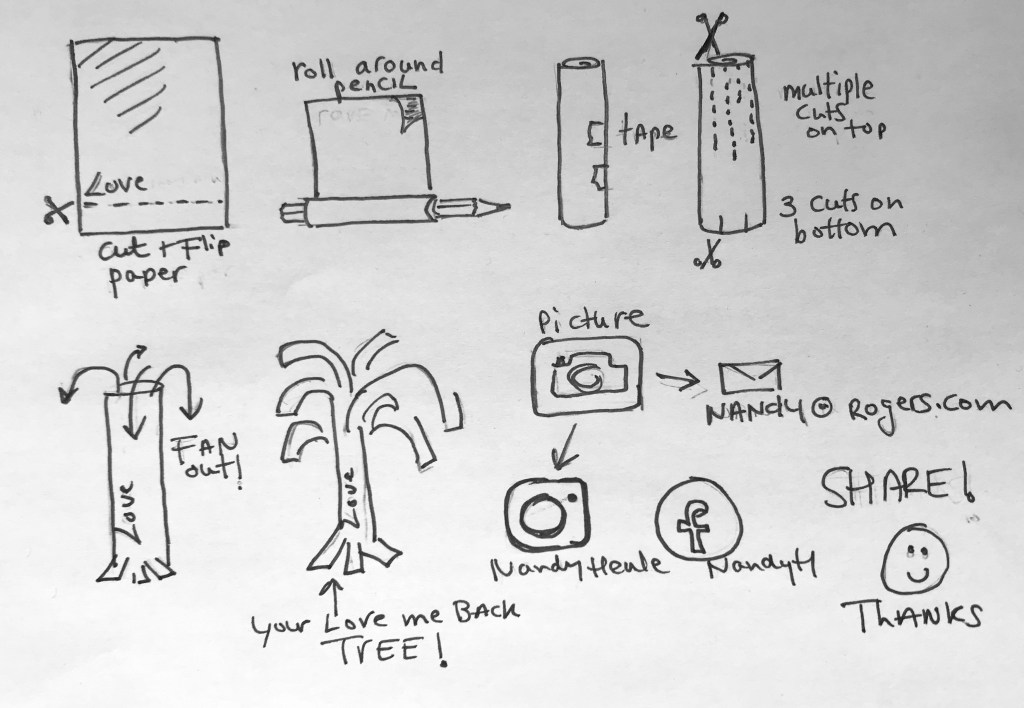 Love
cut + Flip
paper
roll around
pencil
LOVE M
tApe
multiple
cuts
on top
3 cuts on
bottom
Love
FAN
out!
Love
your Love me BACK
TREE!
Picture
NANdy@Rogers.com
NandyHeule
f
NandyH
SHARE!
THANKS